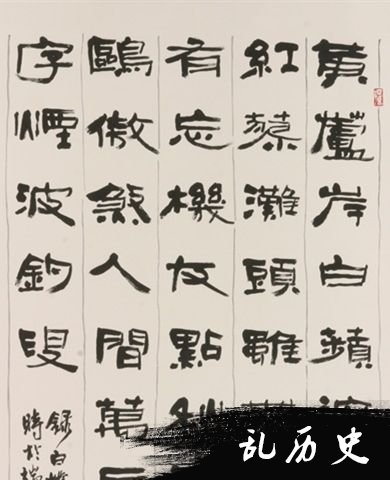 黃蘆岸白蘋
紅蓼灘頭雖
有忘機友點秋
鷗傲煞人間萬
字煙波釣叟
錄白
時於
乱历史